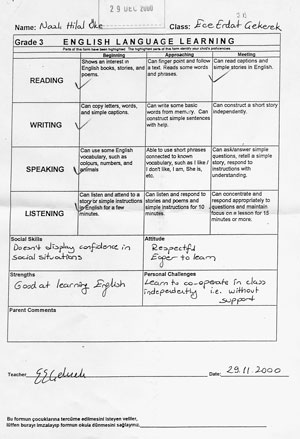 29 DEC 2000
Name: Nazlı Hilal Öke Class: Ece Erdat Gekerek
Grade 3 ENGLISH LANGUAGE LEARNING
Parts of this form have been highlighted. The highlighted parts of this form identify your child's preferences
Beginning Approaching Meeting
READING
Shows an interest in
English books, stories, and
poems.
Can finger point and follow
a text. Reads some words
and phrases.
Can read captions and
simple stories in English.
WRITING
Can copy letters, words,
and simple captions.
Can write some basic
words from memory. Can
construct simple sentences
with help.
Can construct a short story
independently.
SPEAKING
Can use some English
vocabulary, such as
colours, numbers, and
animals.
Able to use short phrases
connected to known
vocabulary, such as I like /
I don't like, I am, She is,
etc.
Can ask/answer simple
questions, retell a simple
story, respond to
instructions with
understanding.
LISTENING
Can listen and attend to a
story or simple instructions
in English for a few
minutes.
Can listen and respond to
stories and poems and
simple instructions for 10
minutes.
Can concentrate and
respond appropriately to
questions and maintain
focus on a lesson for 15
minutes or more.
Social Skills
Doesn't display confidence in
social situations
Attitude
Respectful
Eger to learn
Strengths
Good at learning English
Personal Challenges
Learn to co-operate in class
independently i.e. without
support
Parent Comments
Teacher Date: 29.11.2000
Bu formun çocuklarına tercüme edilmesini isteyen veliler,
lütfen burayı imzalayıp formun okula dönmesini sağlayınız.